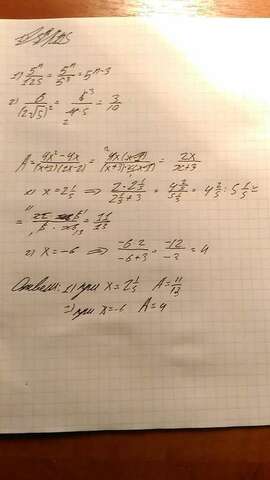 1) 5ⁿ/125 = 5ⁿ/5³ = 5ⁿ⁻³
2) 6/(2√5)² = 6³/(4·5)₂ = 3/10
A = (4x²-4x)/((x+3)(2x-2)) = ²4x(x-1)/((x+3)·2(x-1)) = 2x/(x+3)
1) x = 2 1/5 ⇒ (2·2 1/5)/(2 1/5+3) = (4 2/5)/(5 1/5) = 4 2/5 : 5 1/5 =
= 11/13
2) x = -6 ⇒ (-6·2)/(-6+3) = -12/-3 = 4
Ответ: 1) при x = 2 1/5 A = 11/13
2) при x = -6 A = 4